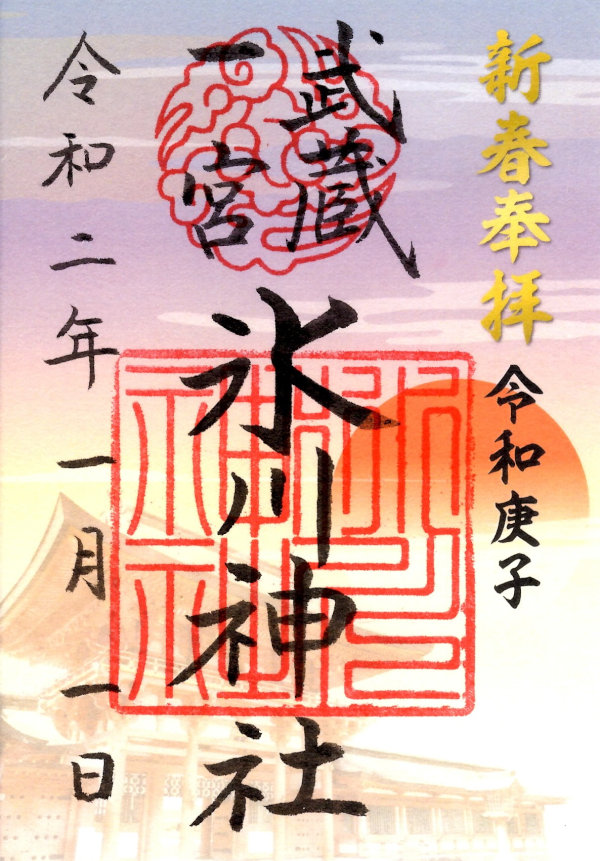 新春奉拝
令和庚子
武蔵
一宮
氷川神社
令和二年一月一日
氷川
神社